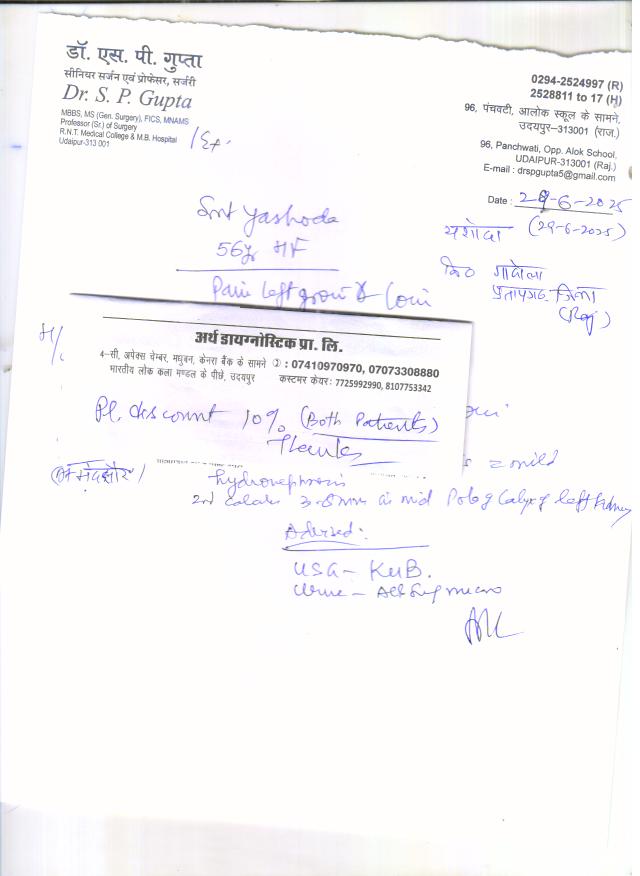 डॉ. एस. पी. गुप्ता
सीनियर सर्जन एवं प्रोफेसर, सर्जरी
Dr. S. P. Gupta
MBBS, MS (Gen. Surgery), FICS, MNAMS
Professor (Sr.) of Surgery
R.N.T. Medical College & M.B. Hospital
Udaipur-313 001
0294-2524997 (R)
2528811 to 17 (H)
96, पंचवटी, आलोक स्कूल के सामने,
उदयपुर–313001 (राज.)
96, Panchwati, Opp. Alok School,
UDAIPUR-313001 (Raj.)
E-mail : drspgupta5@gmail.com
Date : 29-6-2025
यशोदा (29-6-2025)
प्रतापगढ़ जिला
(Raj)
Smt Yashoda
56yr HF
Pain left groin & loin
H/
अर्थ डायग्नोस्टिक प्रा. लि.
4–सी, अपेक्स चेम्बर, मधुबन, केनरा बैंक के सामने : 07410970970, 07073308880
भारतीय लोक कला मण्डल के पीछे, उदयपुर कस्टमर केयर: 7725992990, 8107753342
Pl. discount 10% (Both Patients)
Thanks
mild
hydronephrosis
3-8mm mid Pole of Calyx of left kidney
Advised:
USG- KUB.
Urine-